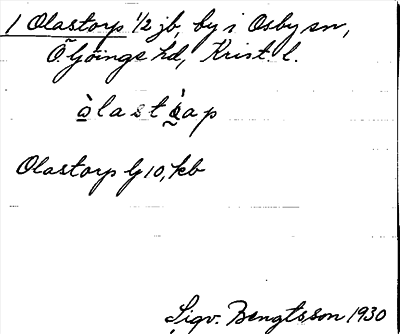 1 Olastorp 1/2 jb, by i Osby sn,
Ö. Göinge hd, Krist. l.
òlastàp
Olastorp lj 10, kb
Sigv. Bengtsson 1930